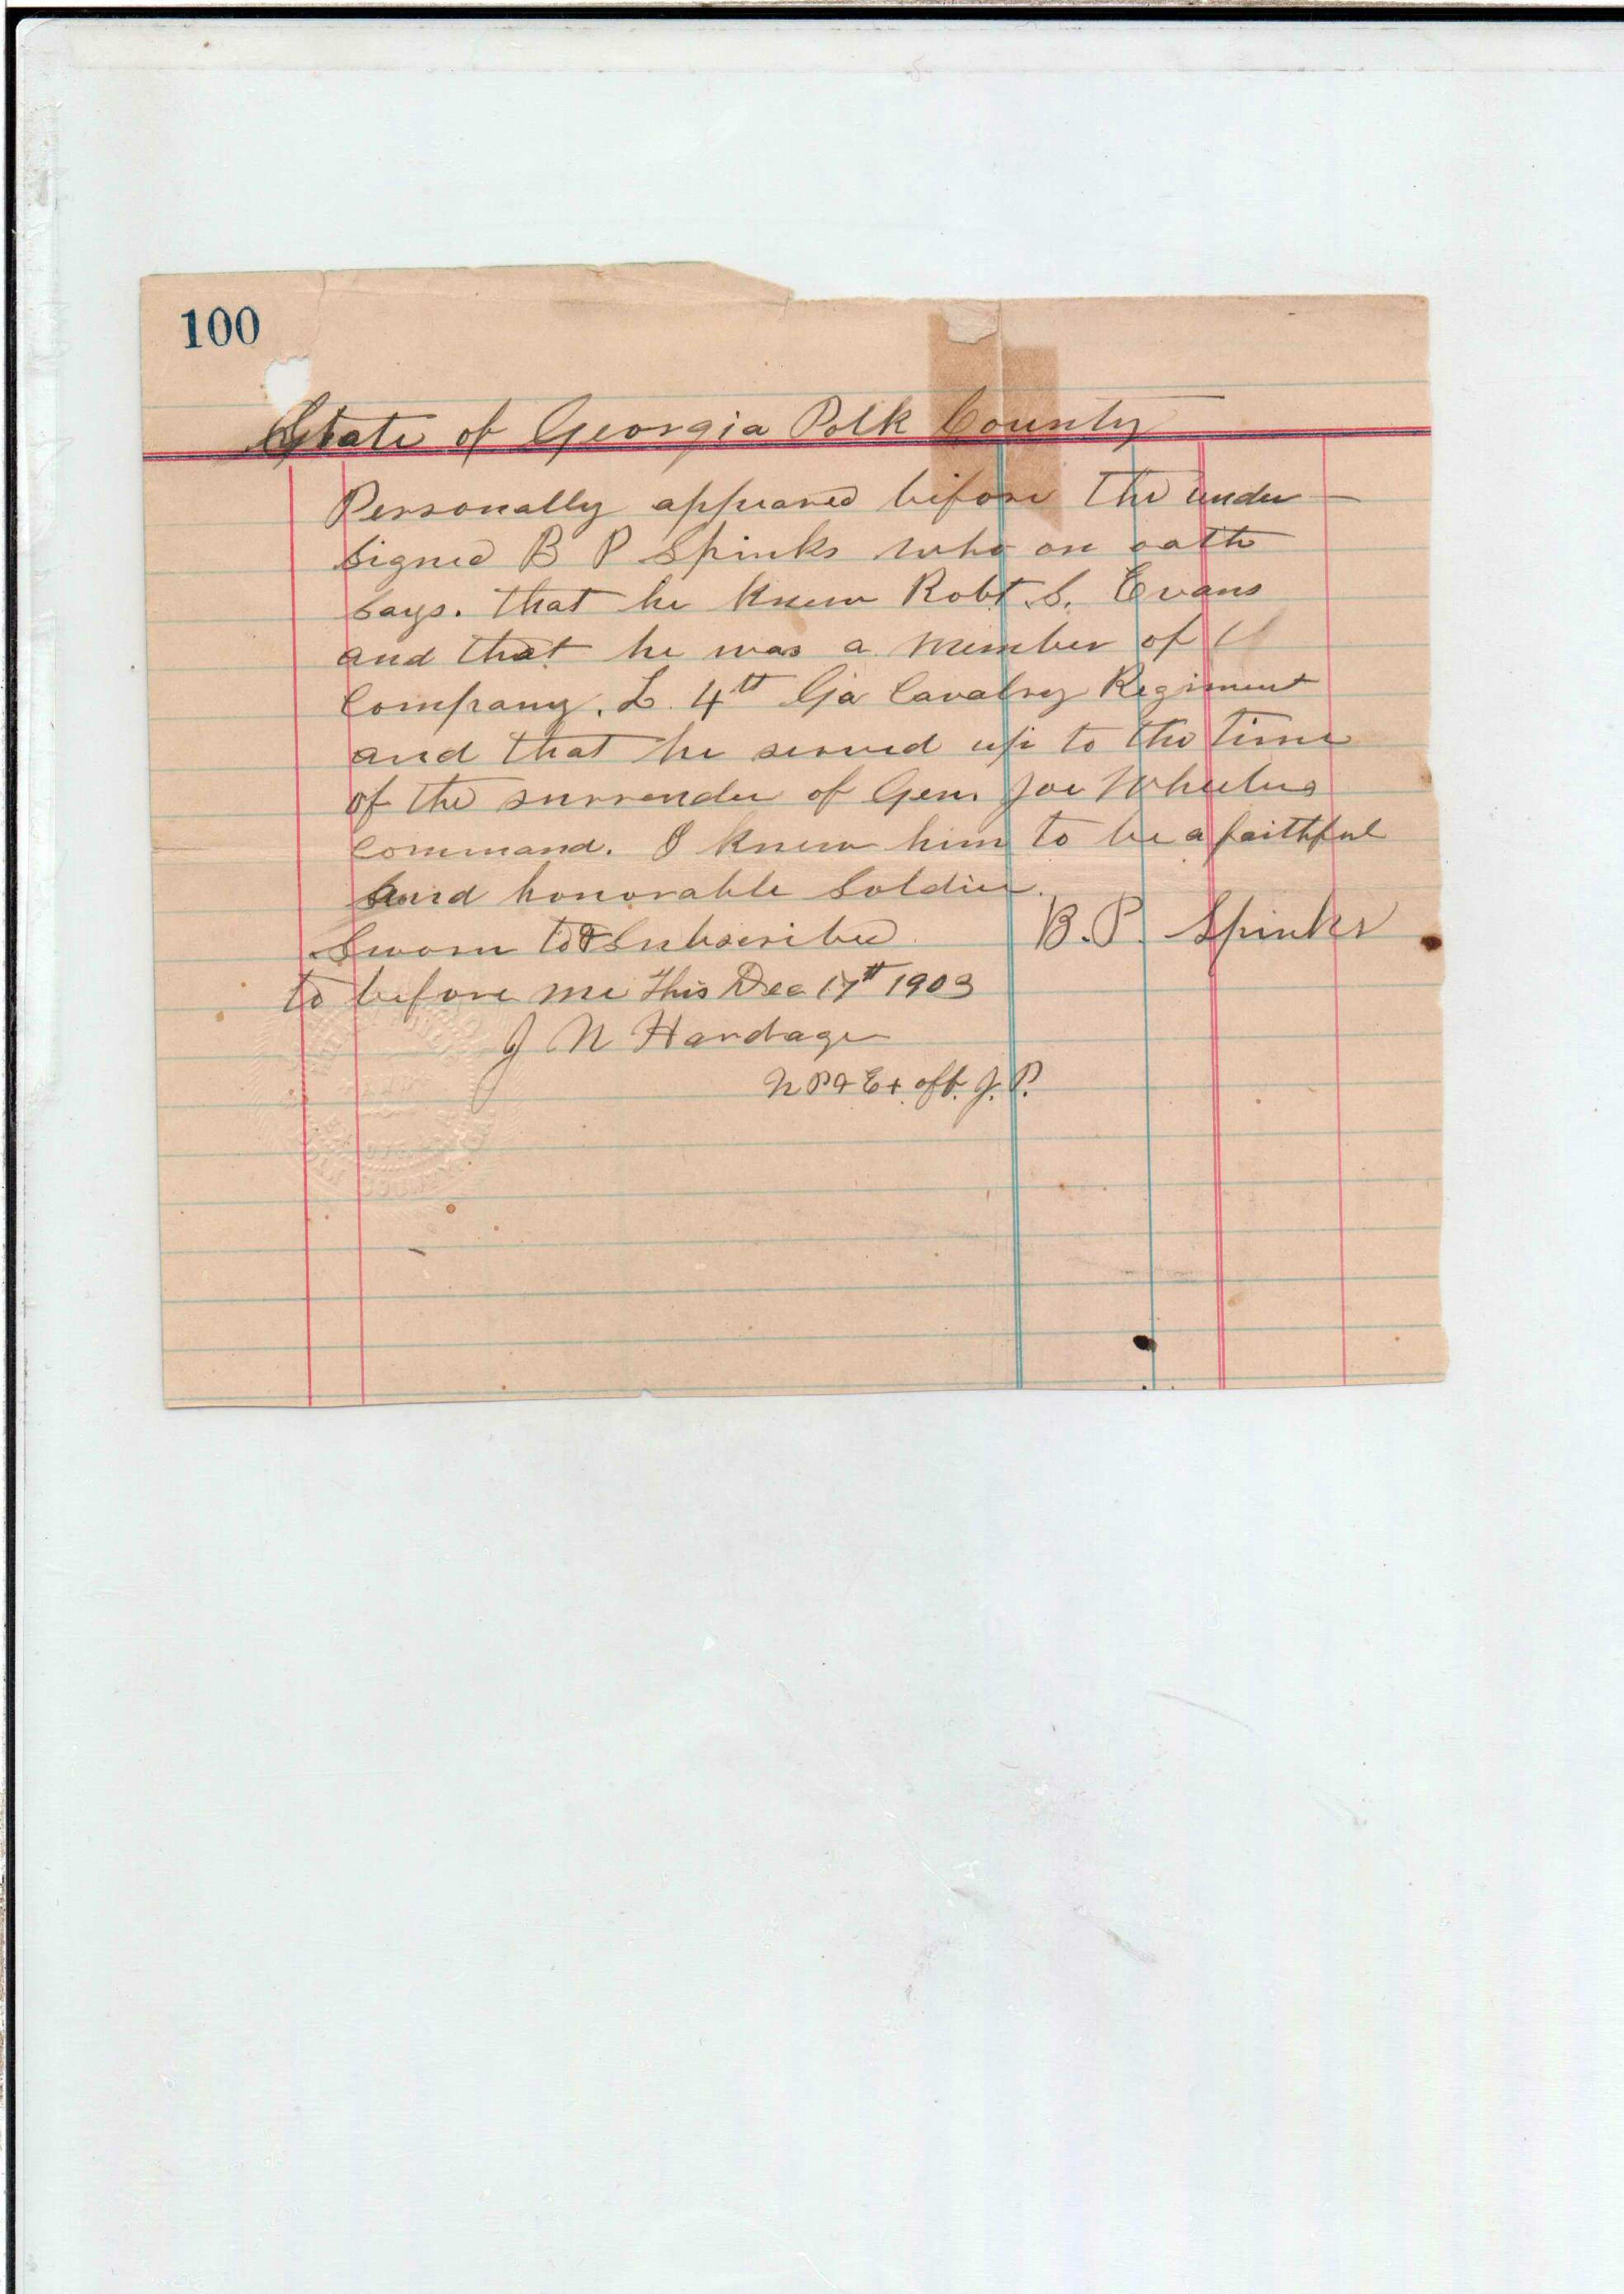 100
State of Georgia Polk County
Personally appeared before the under-
signed B P Spinks who on oath
says. that he knew Robt. S. Evans
and that he was a member of
Company. L. 4th Ga Cavalry Regiment
and that he served up to the time
of the surrender of Gen. Joe Wheelers
command. I knew him to be a faithful
and honorable soldier.
Sworn to & subscribed
B. P. Spinks
to before me this Dec 17th 1903
J N Hardage
N P & Ex. off. J. P.